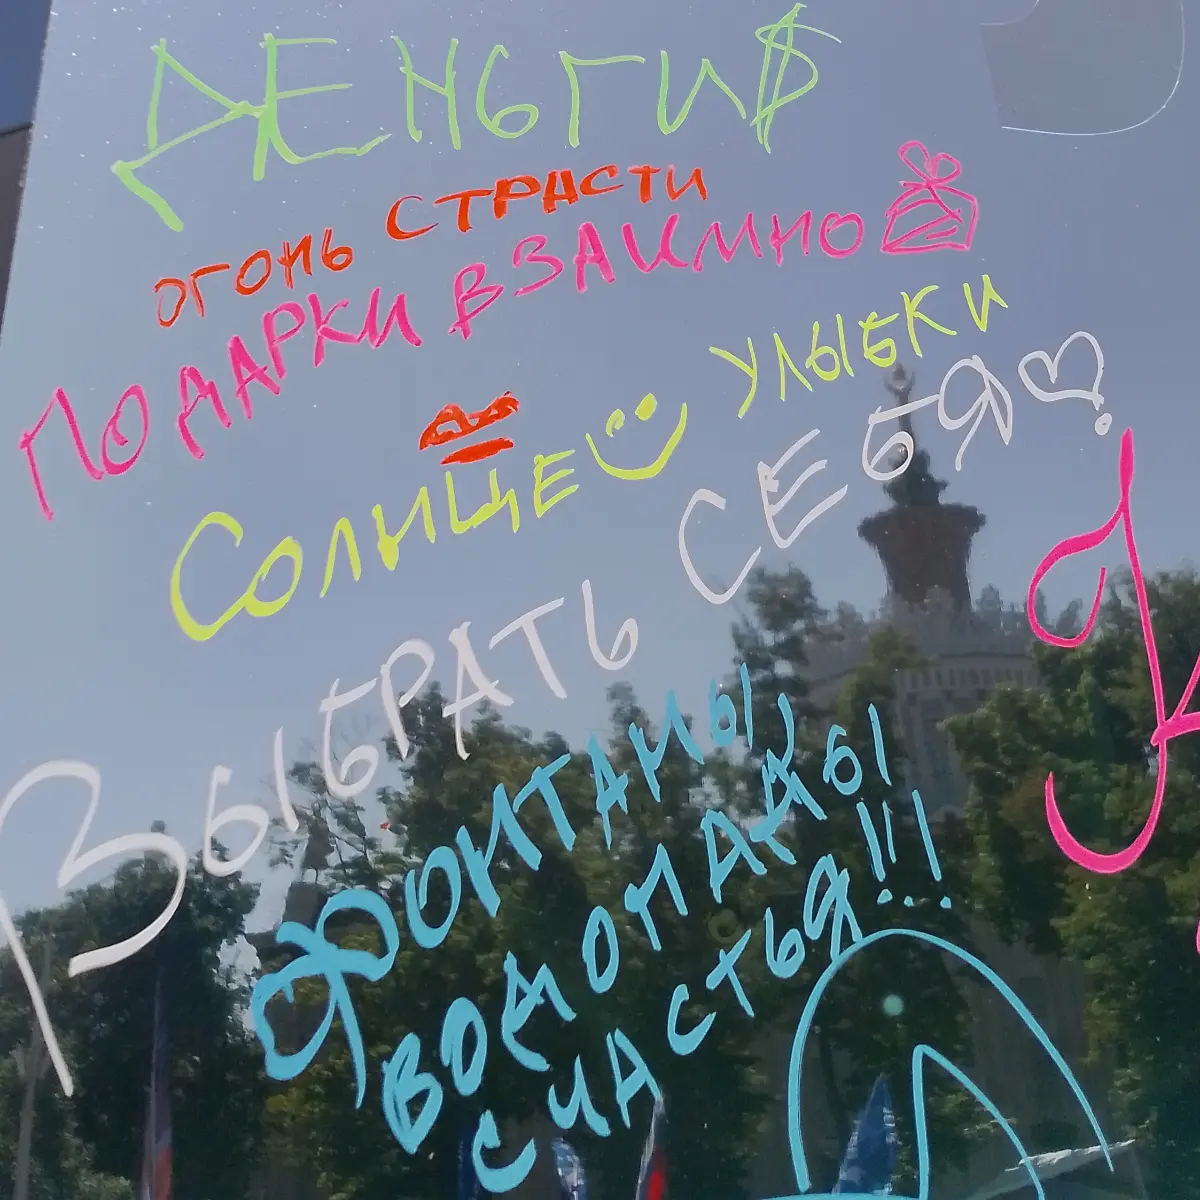 ДЕНЬГИ$
ОГОНЬ СТРАСТИ
ПОДАРКИ ВЗАИМНО
УЛЫБКИ
СОЛНЦЕ
ВЫБРАТЬ СЕБЯ
ФОНТАНЫ,
ВОДОПАДЫ
СЧАСТЬЯ!!!